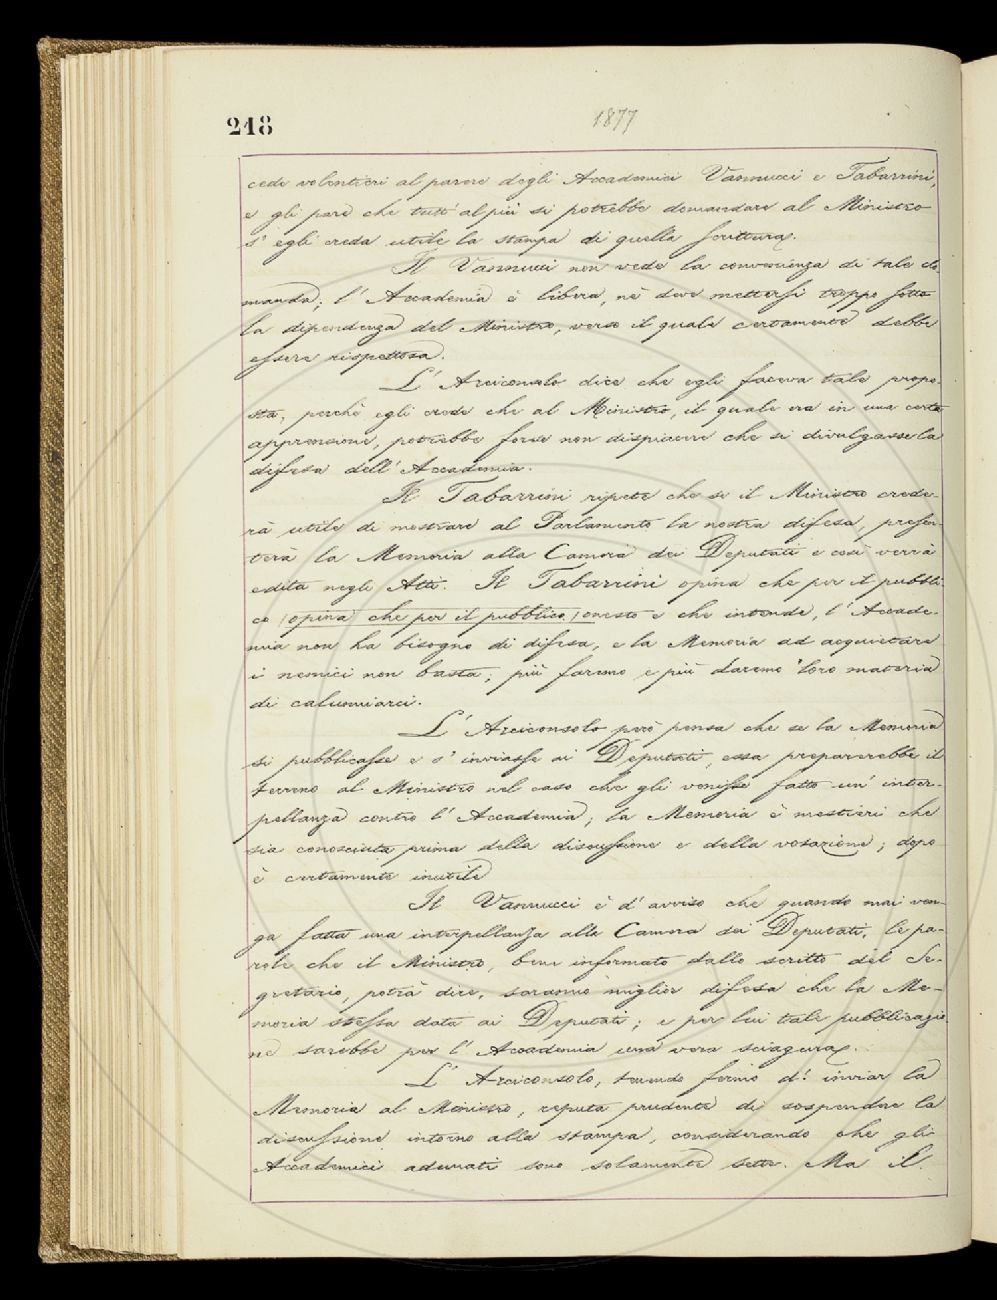 218
1877
cede volentieri al parere degli Accademici Vannucci e Tabarrini,
e gli pare che tutt' al più si potrebbe domandare al Ministro
s' egli creda utile la stampa di quella scrittura.
Il Vannucci non vede la convenienza di tale do-
manda; l' Accademia è libera, nè deve mettersi troppo sotto
la dipendenza del Ministro, verso il quale certamente debbe
essere rispettosa.
L' Arciconsolo dice che egli faceva tale propo-
sta, perchè egli crede che al Ministro, il quale era in una certa
apprensione, potrebbe forse non dispiacere che si divulgasse la
difesa dell' Accademia.
Il Tabarrini ripete che se il Ministro crede-
rà utile di mostrare al Parlamento la nostra difesa, presen-
terà la Memoria alla Camera dei Deputati e così verrà
edita negli Atti. Il Tabarrini opina che per il pubbli-
co (opina che per il pubblico) onesto e che intende, l' Accade-
mia non ha bisogno di difesa, e la Memoria ad acquietare
i nemici non basta; più faremo e più daremo loro materia
di calunniarci.
L' Arciconsolo però pensa che se la Memoria
si pubblicasse e s' inviasse ai Deputati, essa preparerebbe il
terreno al Ministro nel caso che gli venisse fatto un' inter-
pellanza contro l' Accademia; la Memoria è mestieri che
sia conosciuta prima della discussione e della votazione; dopo
è certamente inutile
Il Vannucci è d' avviso che quando mai ven-
ga fatta una interpellanza alla Camera dei Deputati, le pa-
role che il Ministro, bene informato dallo scritto del Se-
gretario, potrà dire, saranno miglior difesa che la Me-
moria stessa data ai Deputati; e per lui tale pubblicazio
ne sarebbe per l' Accademia una vera sciagura.
L' Arciconsolo, tenendo fermo d' inviar la
Memoria al Ministro, reputa prudente di sospendere la
discussione intorno alla stampa, considerando che gli
Accademici adunati sono solamente sette. Ma il